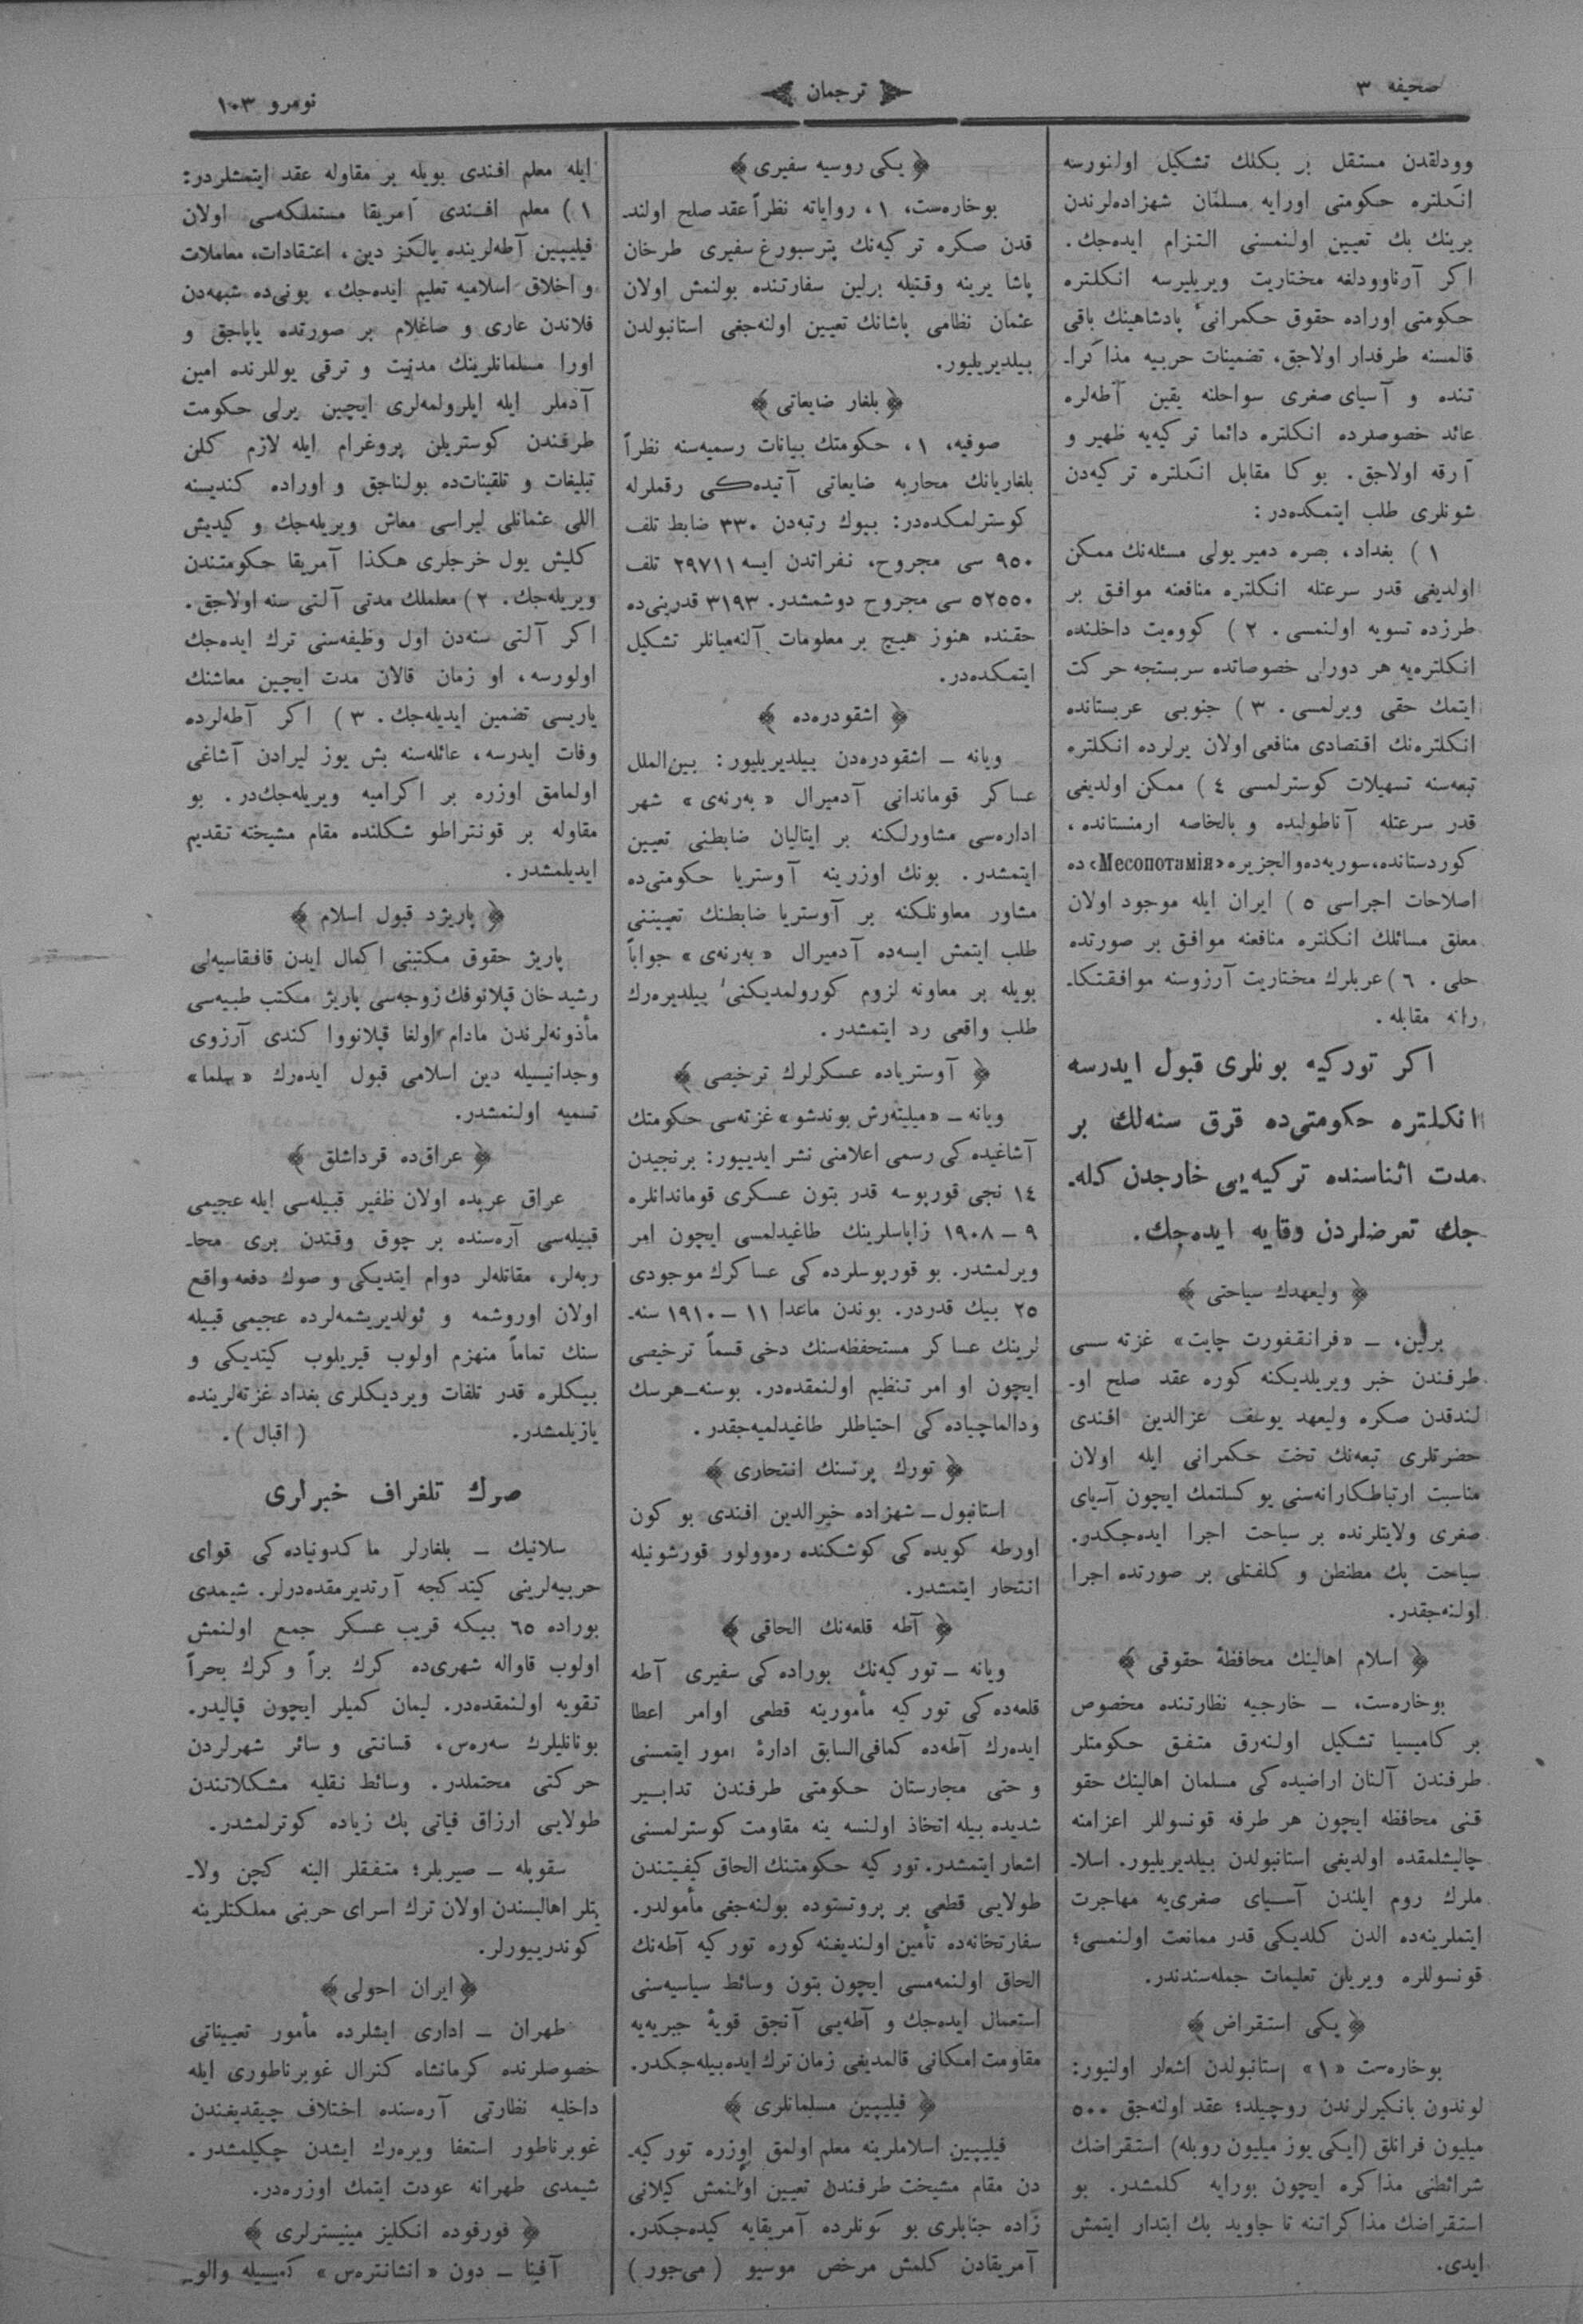 صحيفه ٣
ترجمان
نومرو ١٠٣
وودلقدن مستقل بر بكلك تشكيل اولنورسه
انكلتره حكومتى اورايه مسلمان شهزاده‌لرندن
برينك بك تعيين اولنمسنى التزام ايده‌جك.
اكر آرناوودلغه مختاريت ويريليرسه انكلتره
حكومتى اوراده حقوق حكمرانىء پادشاهينك باقى
قالمسنه طرفدار اولاجق، تضمينات حربيه مذاكرا-
تنده و آسياى صغرى سواحلنه يقين آطه‌لره
عائد خصوصلرده انكلتره دائما تركيه‌يه ظهير و
آرقه اولاجق. بوكا مقابل انكلتره تركيه‌دن
شونلرى طلب ايتمكده‌در:
١) بغداد، بصره دمير يولى مسئله‌نك ممكن
اولديغى قدر سرعتله انكلتره منافعنه موافق بر
طرزده تسويه اولنمسى. ٢) كووه‌يت داخلنده
انكلتره‌يه هر دورلى خصوصاتده سربستجه حركت
ايتمك حقى ويرلمسى. ٣) جنوبى عربستانده
انكلتره‌نك اقتصادى منافعى اولان يرلرده انكلتره
تبعه‌سنه تسهيلات كوسترلمسى ٤) ممكن اولديغى
قدر سرعتله آناطوليده و بالخاصه ارمنستانده،
كوردستانده، سوريه‌ده والجزيره «Месопотамія» ده
اصلاحات اجراسى ٥) ايران ايله موجود اولان
معلق مسائلك انكلتره منافعنه موافق بر صورتده
حلى. ٦) عربلرك مختاريت آرزوسنه موافقتكا-
رانه مقابله.
اكر توركيه بونلرى قبول ايدرسه
انكلتره حكومتى‌ده قرق سنه‌لك بر
مدت اثناسنده تركيه‌يى خارجدن كله-
جك تعرضلردن وقايه ايده‌جك.
﴿ وليعهدك سياحتى ﴾
برلين، ــ «فرانقفورت چايت» غزته سى
طرفندن خبر ويريلديكنه كوره عقد صلح او-
لندقدن صكره وليعهد يوسف عزالدين افندى
حضرتلرى تبعه‌نك تخت حكمرانى ايله اولان
مناسبت ارتباطكارانه‌سنى يوكسلتمك ايچون آسياى
صغرى ولايتلرنده بر سياحت اجرا ايده‌جكدر.
سياحت بك مطنطن و كلفتلى بر صورتده اجرا
اولنه‌جقدر.
﴿ اسلام اهالينك محافظۀ حقوقى ﴾
بوخاره‌ست، ــ خارجيه نظارتنده مخصوص
بر كاميسيا تشكيل اولنه‌رق متفق حكومتلر
طرفندن آلنان اراضيده كى مسلمان اهالينك حقو
قنى محافظه ايچون هر طرفه قونسوللر اعزامنه
چاليشلمقده اولديغى استانبولدن بيلديريليور. اسلا-
ملرك روم ايلندن آسياى صغرى‌يه مهاجرت
ايتملرينه‌ده الدن كلديكى قدر ممانعت اولنمسى؛
قونسوللره ويريلن تعليمات جمله‌سندندر.
﴿ يكى استقراض ﴾
بوخاره‌ست «١» استانبولدن اشعار اولنيور:
لوندون بانكيرلرندن روچيلد؛ عقد اولنه‌جق ٥٠٠
ميليون فرانلق (ايكى يوز ميليون روبله) استقراضك
شرائطنى مذاكره ايچون بورايه كلمشدر. بو
استقراضك مذاكراتنه تا جاويد بك ابتدار ايتمش
ايدى.
﴿ يكى روسيه سفيرى ﴾
بوخاره‌ست، ١، رواياته نظراً عقد صلح اولند-
قدن صكره تركيه‌نك پترسبورغ سفيرى طرخان
پاشا يرينه وقتيله برلين سفارتنده بولنمش اولان
عثمان نظامى پاشانك تعيين اولنه‌جغى استانبولدن
بيلديريليور.
﴿ بلغار ضايعاتى ﴾
صوفيه، ١، حكومتك بيانات رسميه‌سنه نظراً
بلغاريانك محاربه ضايعاتى آتيده‌كى رقملرله
كوسترلمكده‌در: بيوك رتبه‌دن ٣٣٠ ضابط تلف
٩٥٠ سى مجروح، نفراتدن ايسه ٢٩٧١١ تلف
٥٢٥٥٠ سى مجروح دوشمشدر. ٣١٩٣ قدرينى‌ده
حقنده هنوز هيچ بر معلومات آلنه‌ميانلر تشكيل
ايتمكده‌در.
﴿ اشقودره‌ده ﴾
ويانه ــ اشقودره‌دن بيلديريليور: بين‌الملل
عساكر قوماندانى آدميرال «به‌رنه‌ى» شهر
اداره‌سى مشاورلكنه بر ايتاليان ضابطنى تعيين
ايتمشدر. بونك اوزرينه آوستريا حكومتى‌ده
مشاور معاونلكنه بر آوستريا ضابطنك تعييننى
طلب ايتمش ايسه‌ده آدميرال «به‌رنه‌ى» جواباً
بويله بر معاونه لزوم كورولمديكنى بيلديره‌رك
طلب واقعى رد ايتمشدر.
﴿ آوسترياده عسكرلرك ترخيصى ﴾
ويانه ــ «ميليته‌رش بوندشو» غزته‌سى حكومتك
آشاغيده كى رسمى اعلامنى نشر ايدييور: برنجيدن
١٤ نجى قورپوسه قدر بتون عسكرى قوماندانلره
٩ ــ ١٩٠٨ زاپاسلرينك طاغيدلمسى ايچون امر
ويرلمشدر. بو قورپوسلرده كى عساكرك موجودى
٢٥ بيك قدردر. بوندن ماعدا ١١ ــ ١٩١٠ سنه-
لرينك عساكر مستحفظه‌سنك دخى قسماً ترخيصى
ايچون او امر تنظيم اولنمقده‌در. بوسنه ــ هرسك
ودالماچياده كى احتياطلر طاغيدلميه‌جقدر.
﴿ تورك پرنسنك انتحارى ﴾
استانبول ــ شهزاده خيرالدين افندى بو كون
اورطه كويده كى كوشكنده ره‌وولور قورشونيله
انتحار ايتمشدر.
﴿ آطه قلعه‌نك الحاقى ﴾
ويانه ــ توركيه‌نك بوراده كى سفيرى آطه
قلعه‌ده كى توركيه مأمورينه قطعى اوامر اعطا
ايده‌رك آطه‌ده كمافى‌السابق ادارۀ امور ايتمسنى
و حتى مجارستان حكومتى طرفندن تدابير
شديده بيله اتخاذ اولنسه ينه مقاومت كوسترلمسنى
اشعار ايتمشدر. توركيه حكومتنك الحاق كيفيتندن
طولايى قطعى بر پروتستوده بولنه‌جغى مأمولدر.
سفارتخانه‌ده تأمين اولنديغنه كوره توركيه آطه‌نك
الحاق اولنمه‌مسى ايچون بتون وسائط سياسيه‌سنى
استعمال ايده‌جك و آطه‌يى آنجق قوۀ جبريه‌يه
مقاومت امكانى قالمديغى زمان ترك ايده‌بيله‌جكدر.
﴿ فيليپين مسلمانلرى ﴾
فيليپين اسلاملرينه معلم اولمق اوزره توركيه-
دن مقام مشيخت طرفندن تعيين اولنمش كيلانى
زاده جنابلرى بو كونلرده آمريقايه كيده‌جكدر.
آمريقادن كلمش مرخص موسيو (مى‌جور)
ايله معلم افندى بويله بر مقاوله عقد ايتمشلردر:
١) معلم افندى آمريقا مستملكه‌سى اولان
فيليپين آطه‌لرينده يالكز دين، اعتقادات، معاملات
و اخلاق اسلاميه تعليم ايده‌جك، بونى‌ده شبهه‌دن
فلاندن عارى و صاغلام بر صورتده ياپاجق و
اورا مسلمانلرينك مدنيت و ترقى يوللرنده امين
آدملر ايله ايلرولمه‌لرى ايچين يرلى حكومت
طرفندن كوستريلن پروغرام ايله لازم كلن
تبليغات و تلقينات‌ده بولناجق و اوراده كنديسنه
اللى عثمانلى ليراسى معاش ويريله‌جك و كيديش
كليش يول خرجلرى هكذا آمريقا حكومتندن
ويريله‌جك. ٢) معلملك مدتى آلتى سنه اولاجق.
اكر آلتى سنه‌دن اول وظيفه‌سنى ترك ايده‌جك
اولورسه، او زمان قالان مدت ايچين معاشنك
ياريسى تضمين ايديله‌جك. ٣) اكر آطه‌لرده
وفات ايدرسه، عائله‌سنه بش يوز ليرادن آشاغى
اولمامق اوزره بر اكراميه ويريله‌جك‌در. بو
مقاوله بر قونتراطو شكلنده مقام مشيخته تقديم
ايديلمشدر.
﴿ پاريژد قبول اسلام ﴾
پاريژ حقوق مكتبنى اكمال ايدن قافقاسيه‌لى
رشيد خان قپلانوفك زوجه‌سى پاريژ مكتب طبيه‌سى
مأذونه‌لرندن مادام اولغا قپلانووا كندى آرزوى
وجدانيسيله دين اسلامى قبول ايده‌رك «سلما»
تسميه اولنمشدر.
﴿ عراق‌ده قرداشلق ﴾
عراق عربده اولان ظفير قبيله‌سى ايله عجيمى
قبيله‌سى آره‌سنده بر چوق وقتدن برى محا-
ربه‌لر، مقاتله‌لر دوام ايتديكى و صوك دفعه واقع
اولان اوروشمه و ئولديريشمه‌لرده عجيمى قبيله
سنك تماماً منهزم اولوب قيريلوب كيتديكى و
بيكلره قدر تلفات ويرديكلرى بغداد غزته‌لرينده
يازيلمشدر. (اقبال).
صوك تلغراف خبرلرى
سلانيك ــ بلغارلر ماكدونياده كى قواى
حربيه‌لرينى كيتدكجه آرتديرمقده‌درلر. شيمدى
بوراده ٦٥ بيكه قريب عسكر جمع اولنمش
اولوب قاواله شهرى‌ده كرك براً و كرك بحراً
تقويه اولنمقده‌در. ليمان كميلر ايچون قاپليدر.
يونانليلرك سه‌ره‌س، قسانتى و سائر شهرلردن
حركتى محتملدر. وسائط نقليه مشكلاتندن
طولايى ارزاق فياتى پك زياده كوترلمشدر.
سقوپله ــ صربلر؛ متفقلر الينه كچن ولا-
يتلر اهاليسندن اولان ترك اسراى حربنى مملكتلرينه
كوندرييورلر.
﴿ ايران احولى ﴾
طهران ــ ادارى ايشلرده مأمور تعييناتى
خصوصلرنده كرمانشاه كنرال غوبرناطورى ايله
داخليه نظارتى آره‌سنده اختلاف چيقديغندن
غوبرناطور استعفا ويره‌رك ايشدن چكيلمشدر.
شيمدى طهرانه عودت ايتمك اوزره‌در.
﴿ قورفوده انكليز مينيسترلرى ﴾
آفينا ــ دون «انشانتره‌س» والو-